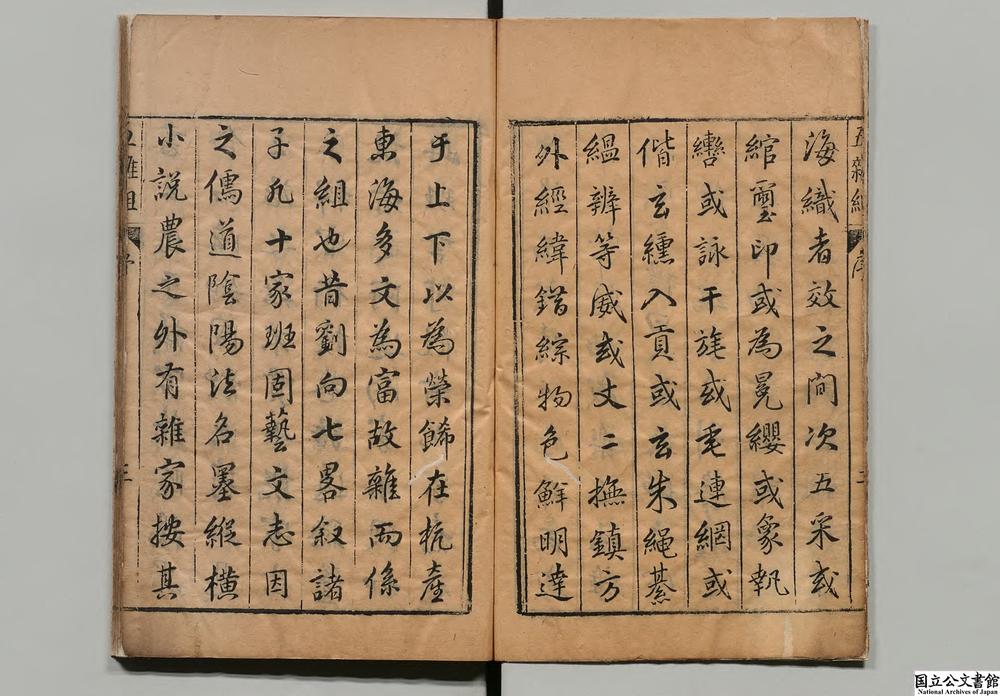 五雜組 序 二
海織者效之間次五采或
綰璽印或為冕纓或象執
轡或詠干旄或垂連網或
偕玄纁入貢或玄朱繩綦
縕辨等威或丈二撫鎮方
外經緯錯綜物色鮮明達
于上下以為榮餙在杭產
東海多文為富故雜而係
之組也昔劉向七畧叙諸
子凡十家班固藝文志因
之儒道陰陽法名墨縱橫
小說農之外有雜家按其
五雜組 序 三
国立公文書館
National Archives of Japan